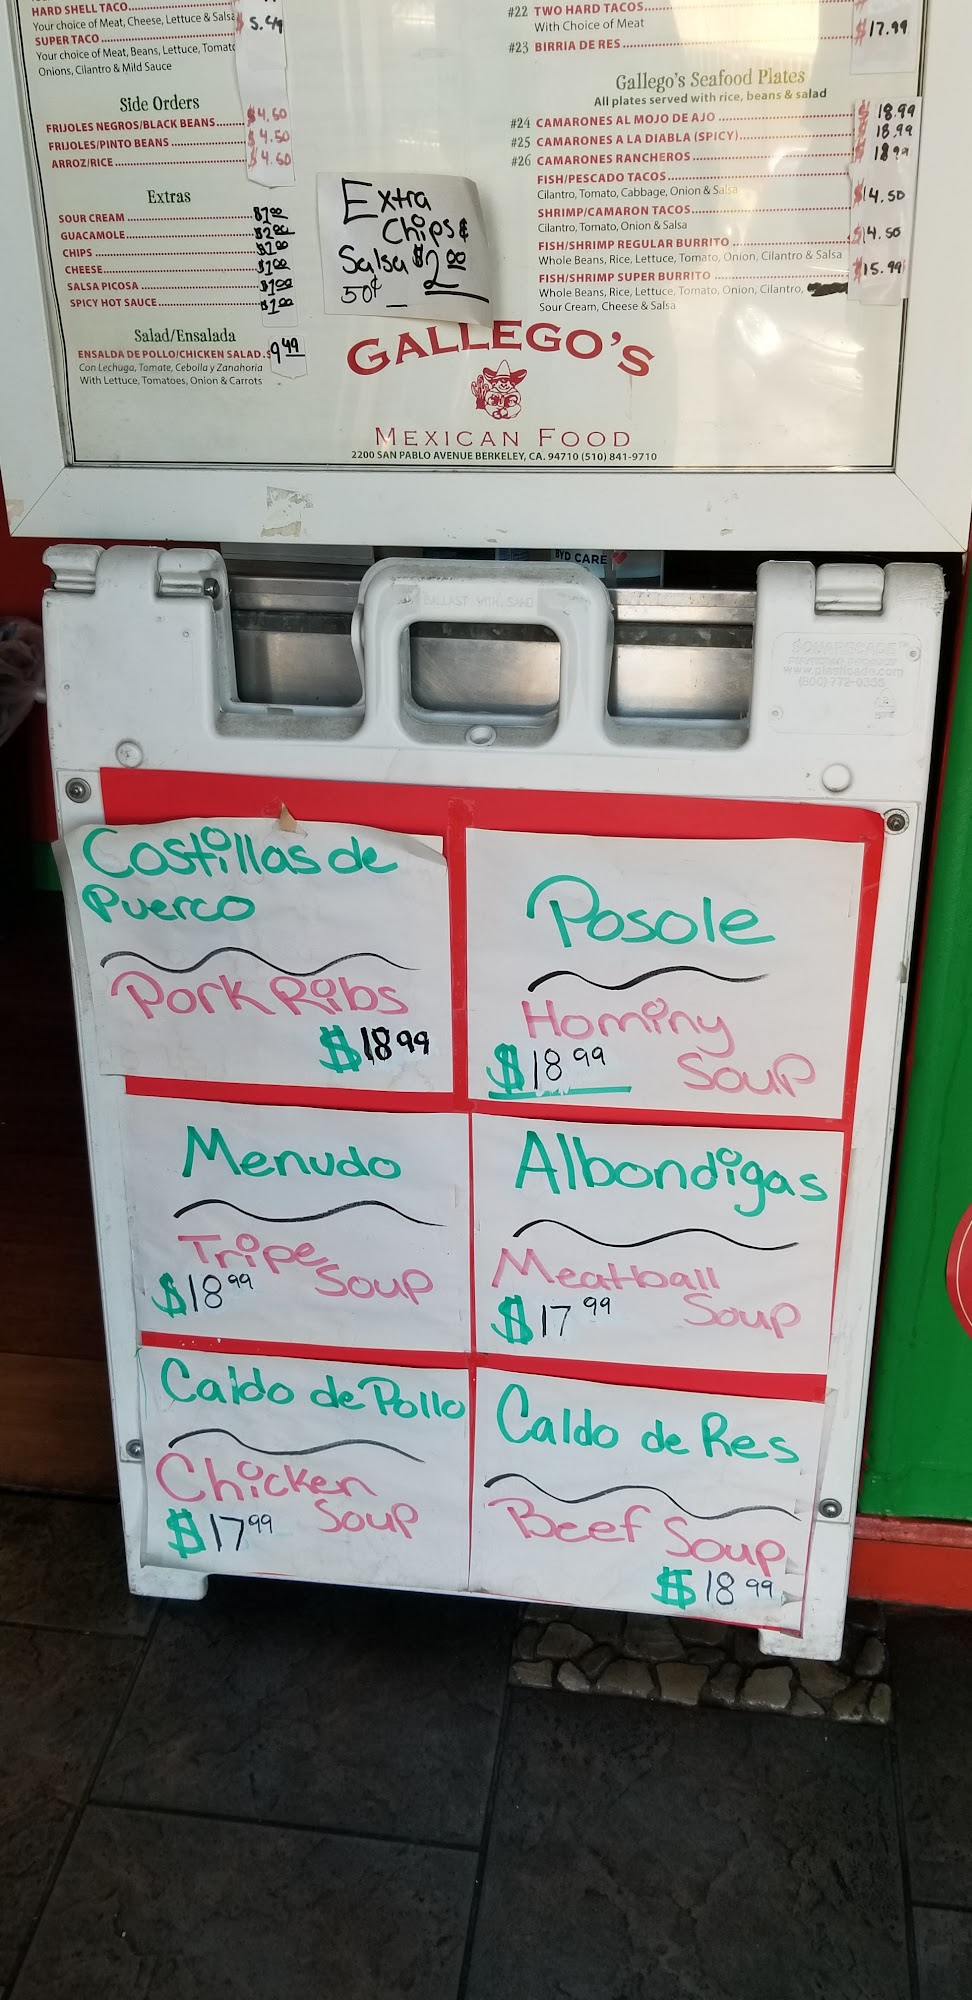 HARD SHELL TACO
Your choice of Meat, Cheese, Lettuce & Salsa
SUPER TACO
Your choice of Meat, Beans, Lettuce, Tomato
Onions, Cilantro & Mild Sauce
Side Orders
FRIJOLES NEGROS/BLACK BEANS $4.50
FRIJOLES/PINTO BEANS $4.50
ARROZ/RICE $4.50
Extras
SOUR CREAM $1.00
GUACAMOLE $2.00
CHIPS $1.00
CHEESE $1.00
SALSA PICOSA $1.00
SPICY HOT SAUCE $1.00
Salad/Ensalada
ENSALDA DE POLLO/CHICKEN SALAD.$9.49
Con Lechuga, Tomate, Cebolla y Zanahoria
With Lettuce, Tomatoes, Onion & Carrots
Extra
Chips &
Salsa $2.00
50¢
#22 TWO HARD TACOS
With Choice of Meat
#23 BIRRIA DE RES $17.99
Gallego's Seafood Plates
All plates served with rice, beans & salad
#24 CAMARONES AL MOJO DE AJO $18.99
#25 CAMARONES A LA DIABLA (SPICY) 18.99
#26 CAMARONES RANCHEROS 18.99
FISH/PESCADO TACOS $14.50
Cilantro, Tomato, Cabbage, Onion & Salsa
SHRIMP/CAMARON TACOS
Cilantro, Tomato, Onion & Salsa
FISH/SHRIMP REGULAR BURRITO $14.50
Whole Beans, Rice, Lettuce, Tomato, Onion, Cilantro & Salsa
FISH/SHRIMP SUPER BURRITO $15.99
Whole Beans, Rice, Lettuce, Tomato, Onion, Cilantro,
Sour Cream, Cheese & Salsa
GALLEGO'S
MEXICAN FOOD
2200 SAN PABLO AVENUE BERKELEY, CA. 94710 (510) 841-9710
BYD CARE
BALLAST WITH SAND
www.plasticade.com
Costillas de
Puerco
Pork Ribs
$18.99
Posole
Hominy
Soup
$18.99
Menudo
Tripe
Soup
$18.99
Albondigas
Meatball
Soup
$17.99
Caldo de Pollo
Chicken
Soup
$17.99
Caldo de Res
Beef Soup
$18.99